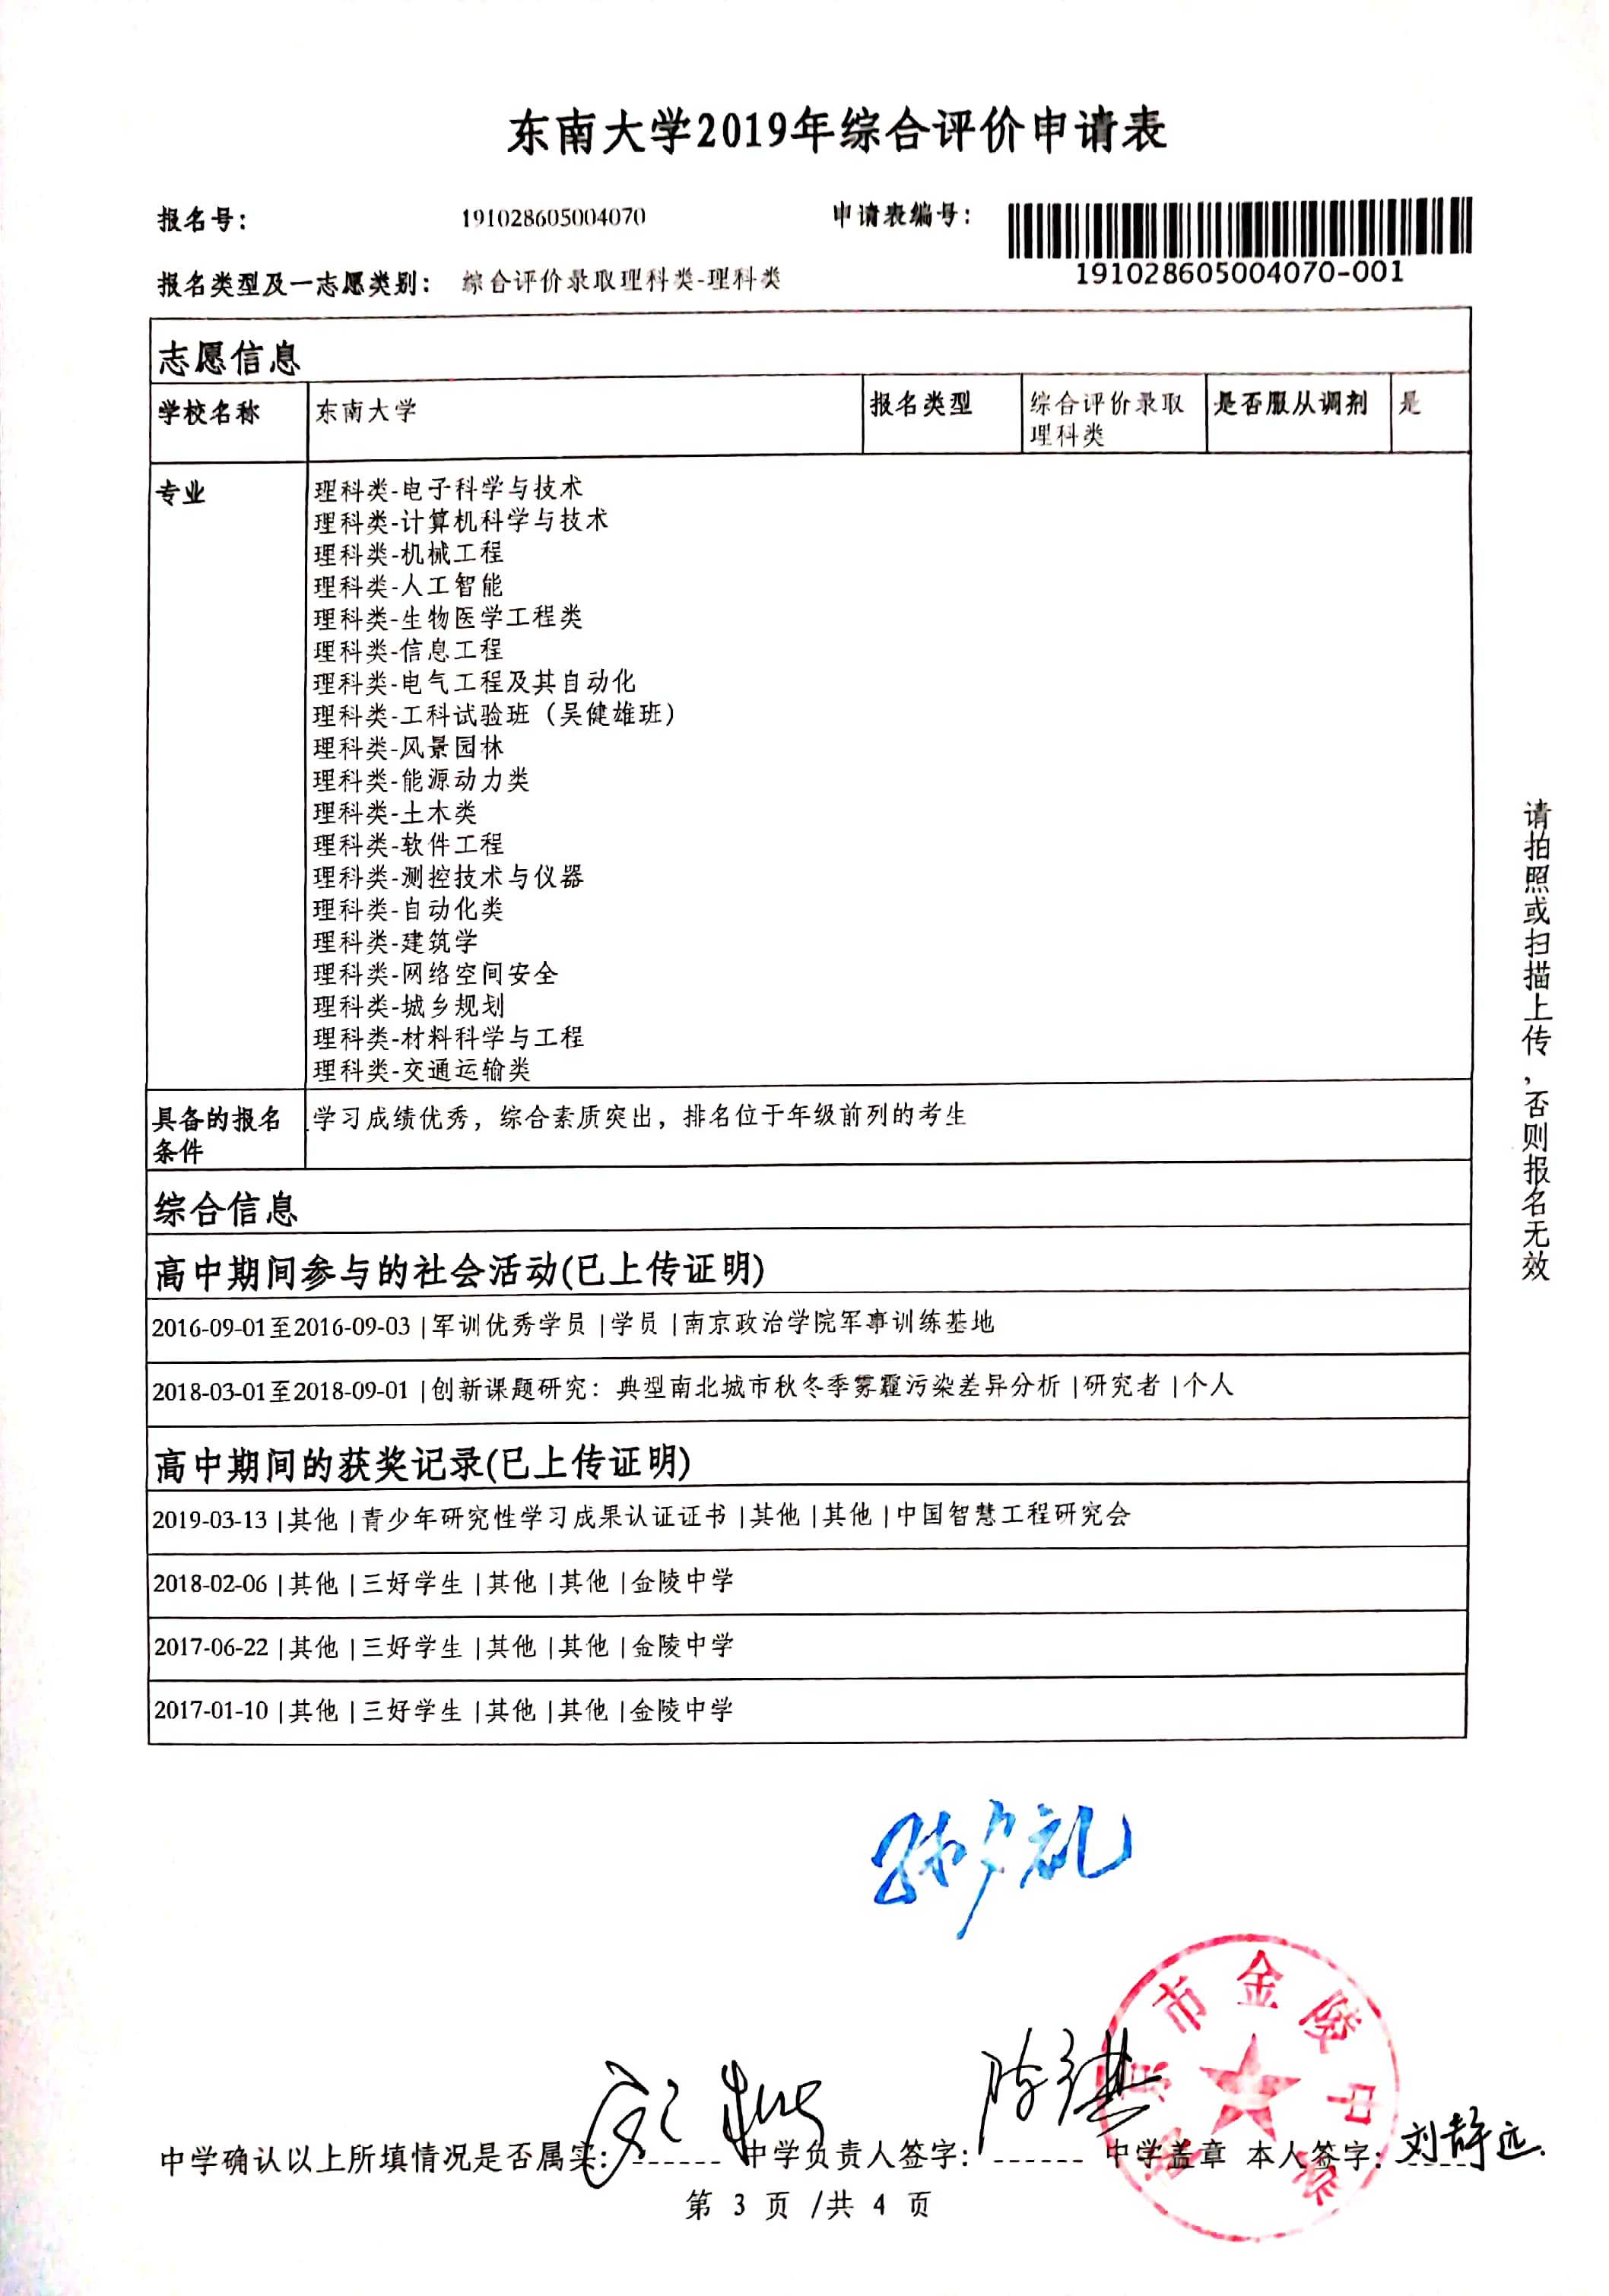 东南大学2019年综合评价申请表
报名号： 191028605004070 申请表编号：
191028605004070-001
报名类型及一志愿类别： 综合评价录取理科类-理科类
志愿信息
学校名称 东南大学 报名类型 综合评价录取理科类 是否服从调剂 是
专业
理科类-电子科学与技术
理科类-计算机科学与技术
理科类-机械工程
理科类-人工智能
理科类-生物医学工程类
理科类-信息工程
理科类-电气工程及其自动化
理科类-工科试验班（吴健雄班）
理科类-风景园林
理科类-能源动力类
理科类-土木类
理科类-软件工程
理科类-测控技术与仪器
理科类-自动化类
理科类-建筑学
理科类-网络空间安全
理科类-城乡规划
理科类-材料科学与工程
理科类-交通运输类
具备的报名条件 学习成绩优秀，综合素质突出，排名位于年级前列的考生
综合信息
高中期间参与的社会活动(已上传证明)
2016-09-01至2016-09-03 |军训优秀学员 |学员 |南京政治学院军事训练基地
2018-03-01至2018-09-01 |创新课题研究：典型南北城市秋冬季雾霾污染差异分析 |研究者 |个人
高中期间的获奖记录(已上传证明)
2019-03-13 |其他 |青少年研究性学习成果认证证书 |其他 |其他 |中国智慧工程研究会
2018-02-06 |其他 |三好学生 |其他 |其他 |金陵中学
2017-06-22 |其他 |三好学生 |其他 |其他 |金陵中学
2017-01-10 |其他 |三好学生 |其他 |其他 |金陵中学
请拍照或扫描上传，否则报名无效
南京市金陵中学
中学确认以上所填情况是否属实：------ 中学负责人签字：------ 中学盖章 本人签字：刘静远
第 3 页 /共 4 页